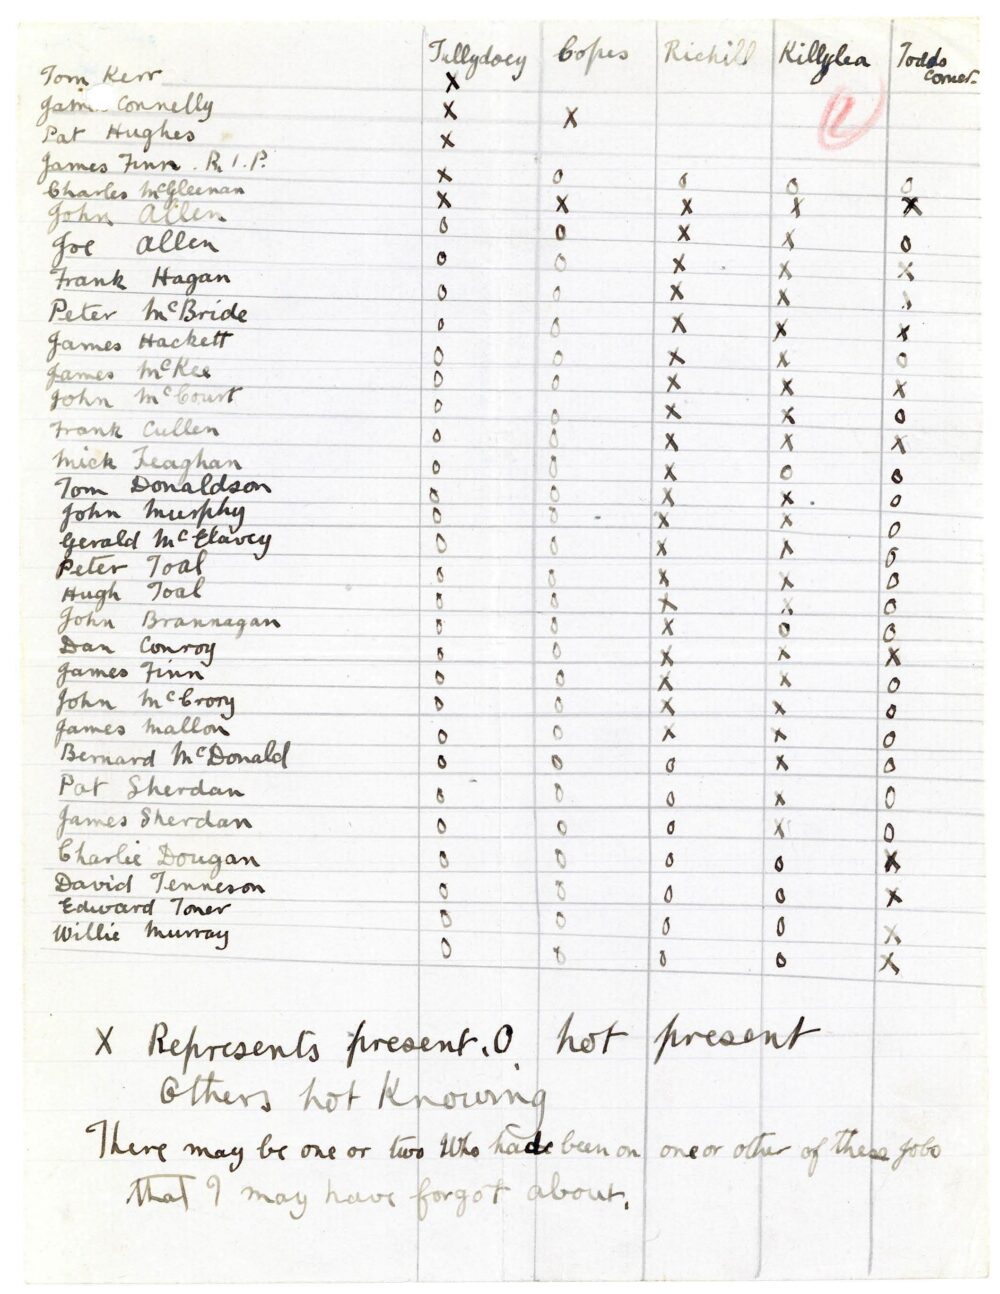 Tullydoey Copes Richill Killylea Todds corner
Tom Kerr X
James Connelly X X
Pat Hughes X
James Finn . R. I. P. X 0 0 0 0
Charles McGleenan X X X X X
John Allen 0 0 X X 0
Joe Allen 0 0 X X X
Frank Hagan 0 0 X X
Peter McBride 0 0 X X X
James Hackett 0 0 X X 0
James McKee 0 0 X X X
John McCourt 0 0 X X 0
Frank Cullen 0 0 X X X
Mick Feaghan 0 0 X 0 0
Tom Donaldson 0 0 X X 0
John Murphy 0 0 X X 0
Gerald McElavey 0 0 X X 0
Peter Toal 0 0 X X 0
Hugh Toal 0 0 X X 0
John Brannagan 0 0 X 0 0
Dan Conroy 0 0 X X X
James Finn 0 0 X X 0
John McCrory 0 0 X X 0
James Mallon 0 0 X X 0
Bernard McDonald 0 0 0 X 0
Pat Sherdan 0 0 0 X 0
James Sherdan 0 0 0 X 0
Charlie Dougan 0 0 0 0 X
David Tenneson 0 0 0 0 X
Edward Toner 0 0 0 0 X
Willie Murray 0 0 0 0 X
X Represents present. 0 not present
Others not Knowing
There may be one or two Who had been on one or other of these jobs
that I may have forgot about.